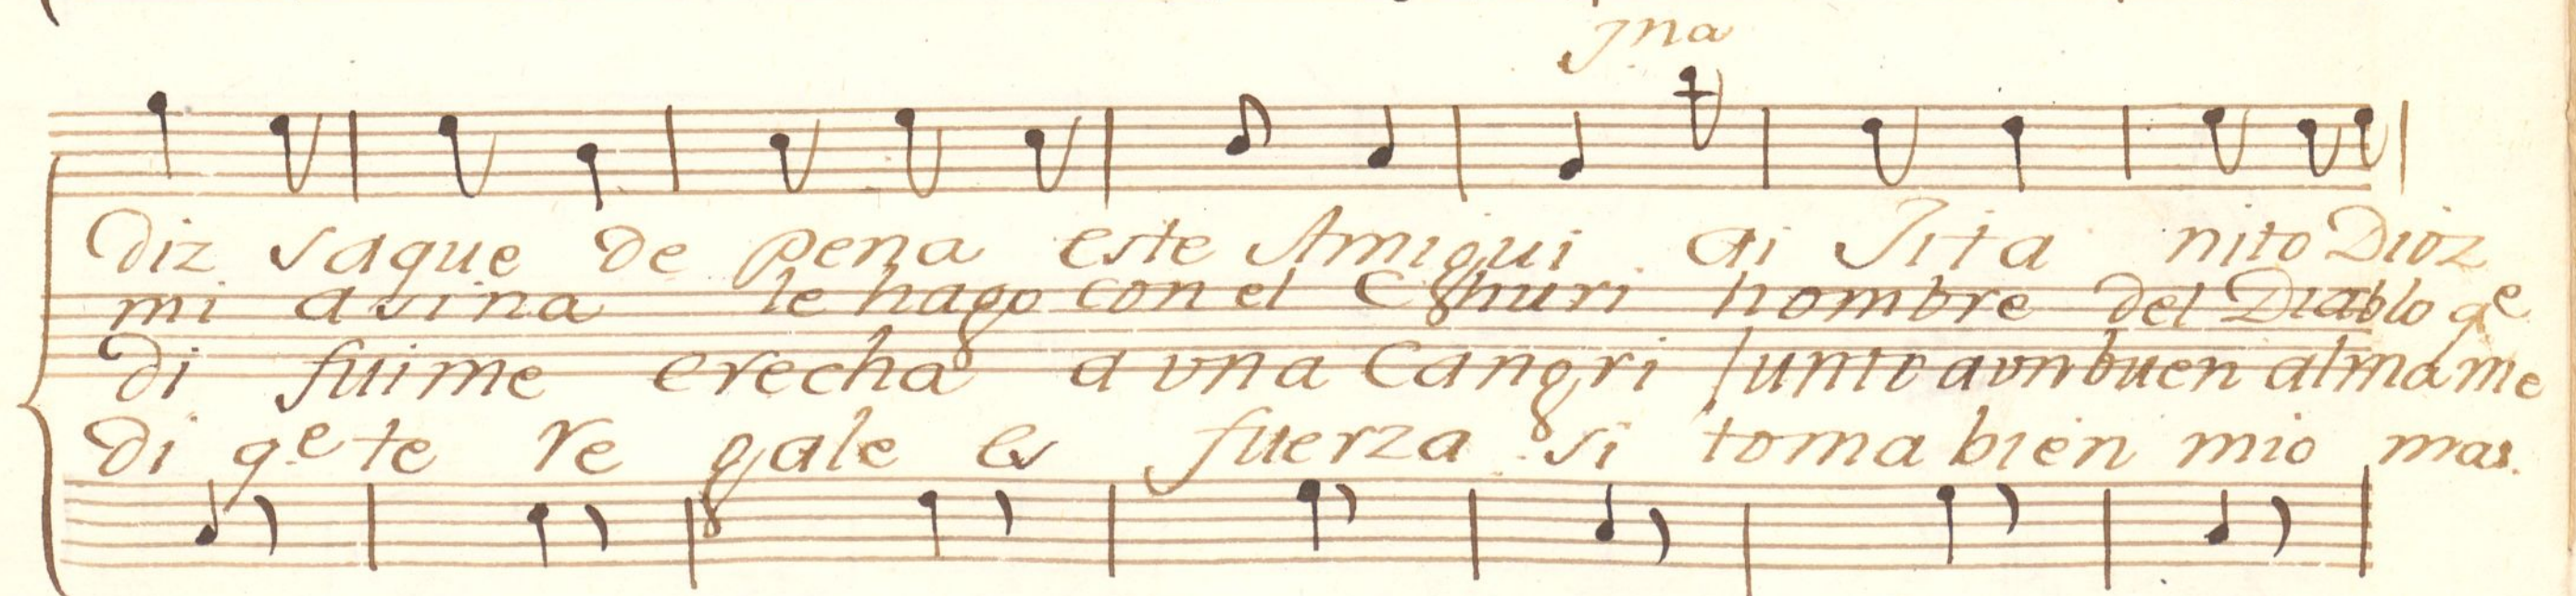 Jna
diz saque de pena este Amigui ai Jita nito Dioz
mi asina le hago con el Churi hombre del Diablo qe
di fuime erecha a vna Cangri Junto avn buen alma me
di qe te re gale es fuerza si toma bien mio mas.